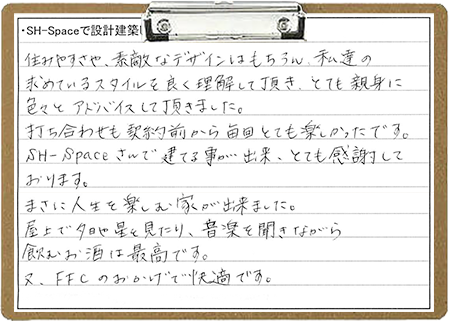 ・SH-Spaceで設計建築
住みやすさや、素敵なデザインはもちろん、私達の
求めているスタイルを良く理解して頂き、とても親身に
色々とアドバイスして頂きました。
打ち合わせも契約前から毎回とても楽しかったです。
SH-Spaceさんで建てる事が出来、とても感謝して
おります。
まさに人生を楽しむ家が出来ました。
屋上で夕日や星を見たり、音楽を聞きながら
飲むお酒は最高です。
又、FFCのおかげで快適です。